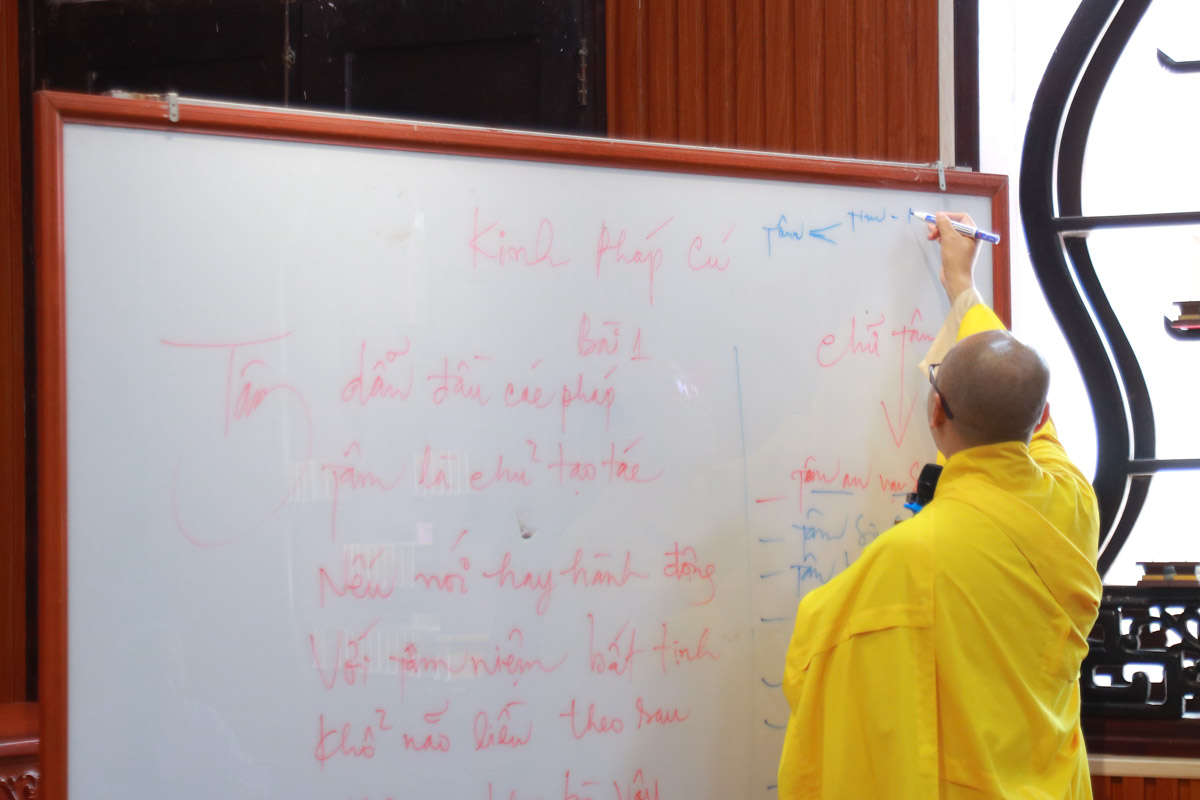 Kinh Pháp Cú
Bài 1
Tâm dẫn đầu các pháp
Tâm là chủ tạo tác
Nếu nói hay hành động
Với tâm niệm bất tịnh
Khổ não liền theo sau
Tâm < Tim -
chữ tâm
- Tâm an vạn
- Tâm
- Tâm